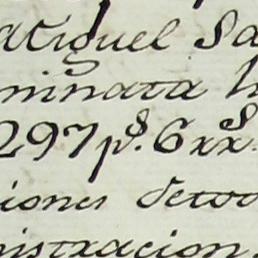 Miguel Sa
minata h
297 p.s 6 xx.s
iones de to
nistracion.